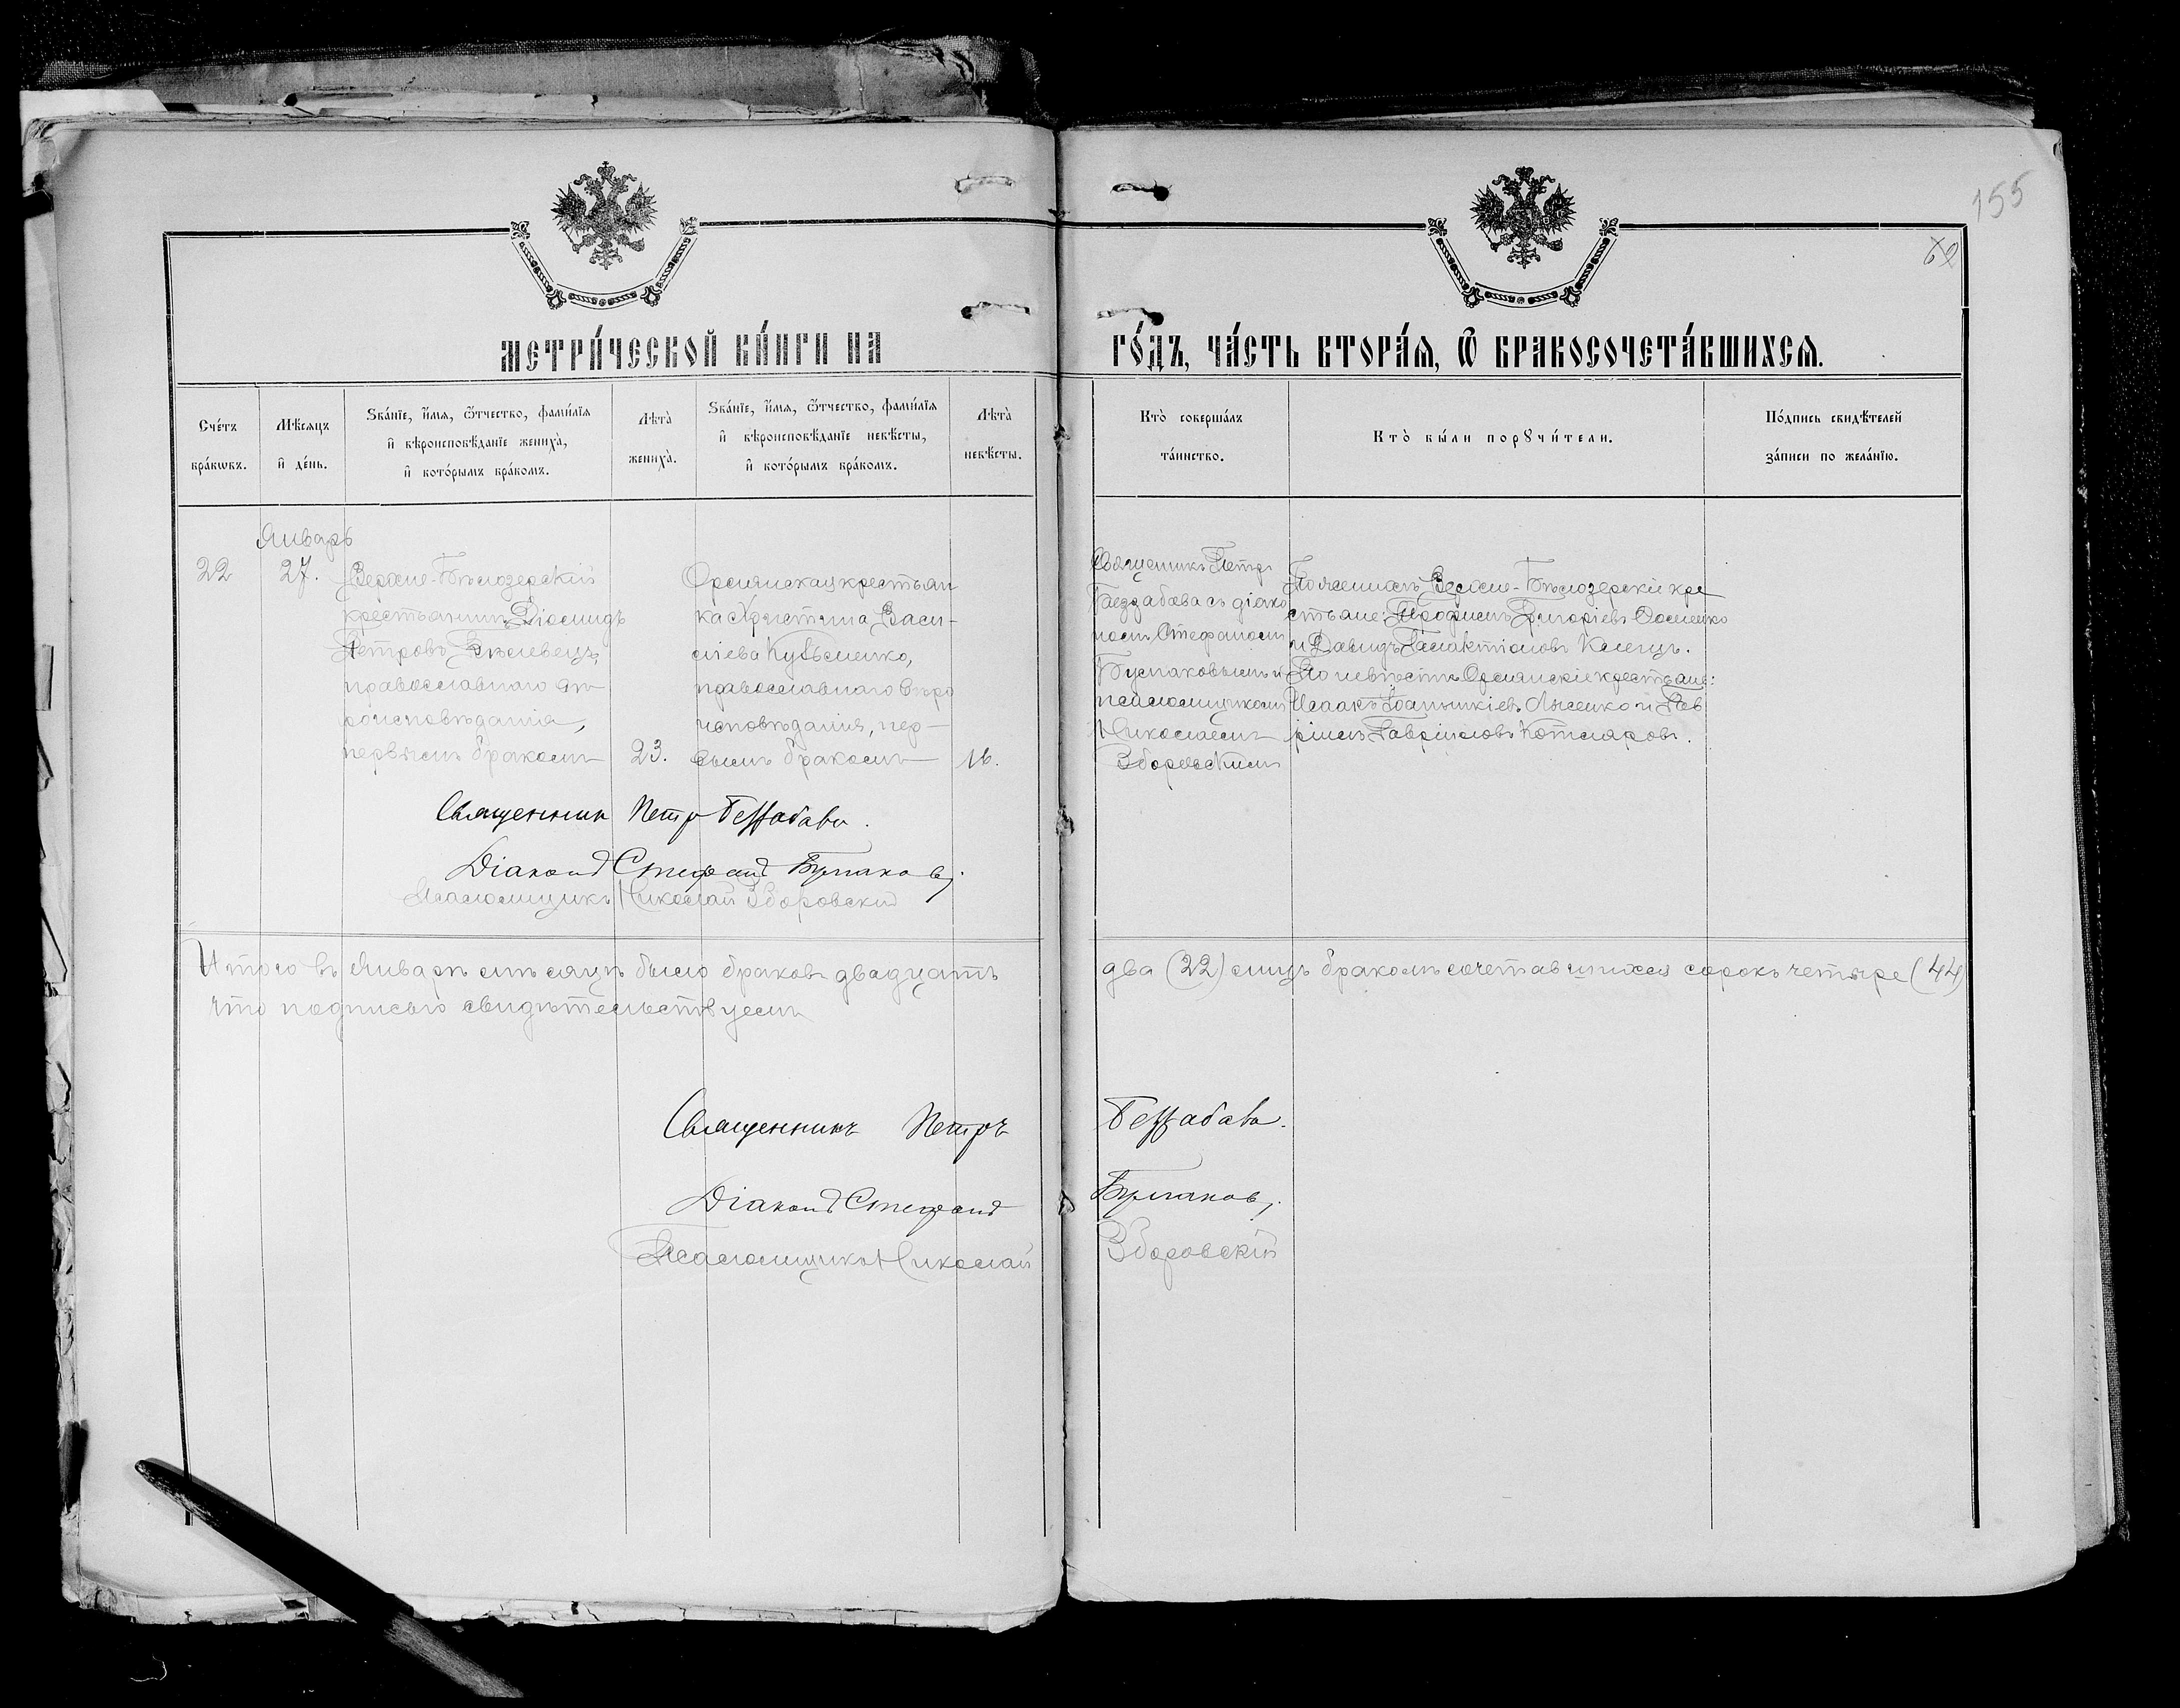 155
МЕТРИ́ЧЕСКОЙ КНИ́ГИ НА ГО́ДЪ, ЧА́СТЬ ВТОРА́Ѧ, Ѽ БРАКОСОЧЕТА́ВШИХСѦ.
Сче́тъ бра́кѡвъ.
Мѣ́сяцъ и де́нь.
Ѕва́нїе, и́мя, ѻ́тчество, фами́лїя и вѣроисповѣ́данїе жениха̀, и кото́рымъ бра́комъ.
Лѣта̀ жениха̀.
Ѕва́нїе, и́мя, ѻ́тчество, фами́лїя и вѣроисповѣ́данїе невѣ́сты, и кото́рымъ бра́комъ.
Лѣта̀ невѣ́сты.
Кто̀ соверша́лъ та́инство.
Кто̀ бы́ли порꙋчи́тели.
По́дпись свидѣ́телей за́писи по жела́нїю.
22
Январь
27.
Верхне-Бѣлозерскій
крестьянинъ Діомидъ
Петровъ
православнаго вѣ-
роисповѣданія,
первымъ бракомъ
23.
Орлянская крестьян
ка Христина Васи-
ліева Кузьменко,
православнаго вѣро
исповѣданія, пер-
вымъ бракомъ
16.
Священникъ Петръ
Беззабава съ діако
номъ Стефаномъ
Булаковымъ и
псаломщикомъ
Николаемъ
Зборовскимъ
По женихѣ Верхне-Бѣлозерскіе кре
стьяне: Трофимъ Григоріевъ
и Давидъ Галактіоновъ
По невѣстѣ Орлянскіе крестьяне:
Исаакъ Іоанникіевъ Лысенко и Гав
ріилъ Гавріиловъ Котляровъ.
Священникъ Петръ Беззабава.
Діаконъ Стефанъ Булаковъ.
Псаломщикъ Николай Зборовскій
Итого въ Январѣ мѣсяцѣ было браковъ двадцать два (22) лицъ бракомъ сочетавшихся сорокъ четыре (44)
что подписью свидѣтельствуемъ
Священникъ Петръ Беззабава.
Діаконъ Стефанъ Булаковъ.
Псаломщикъ Николай Зборовскій